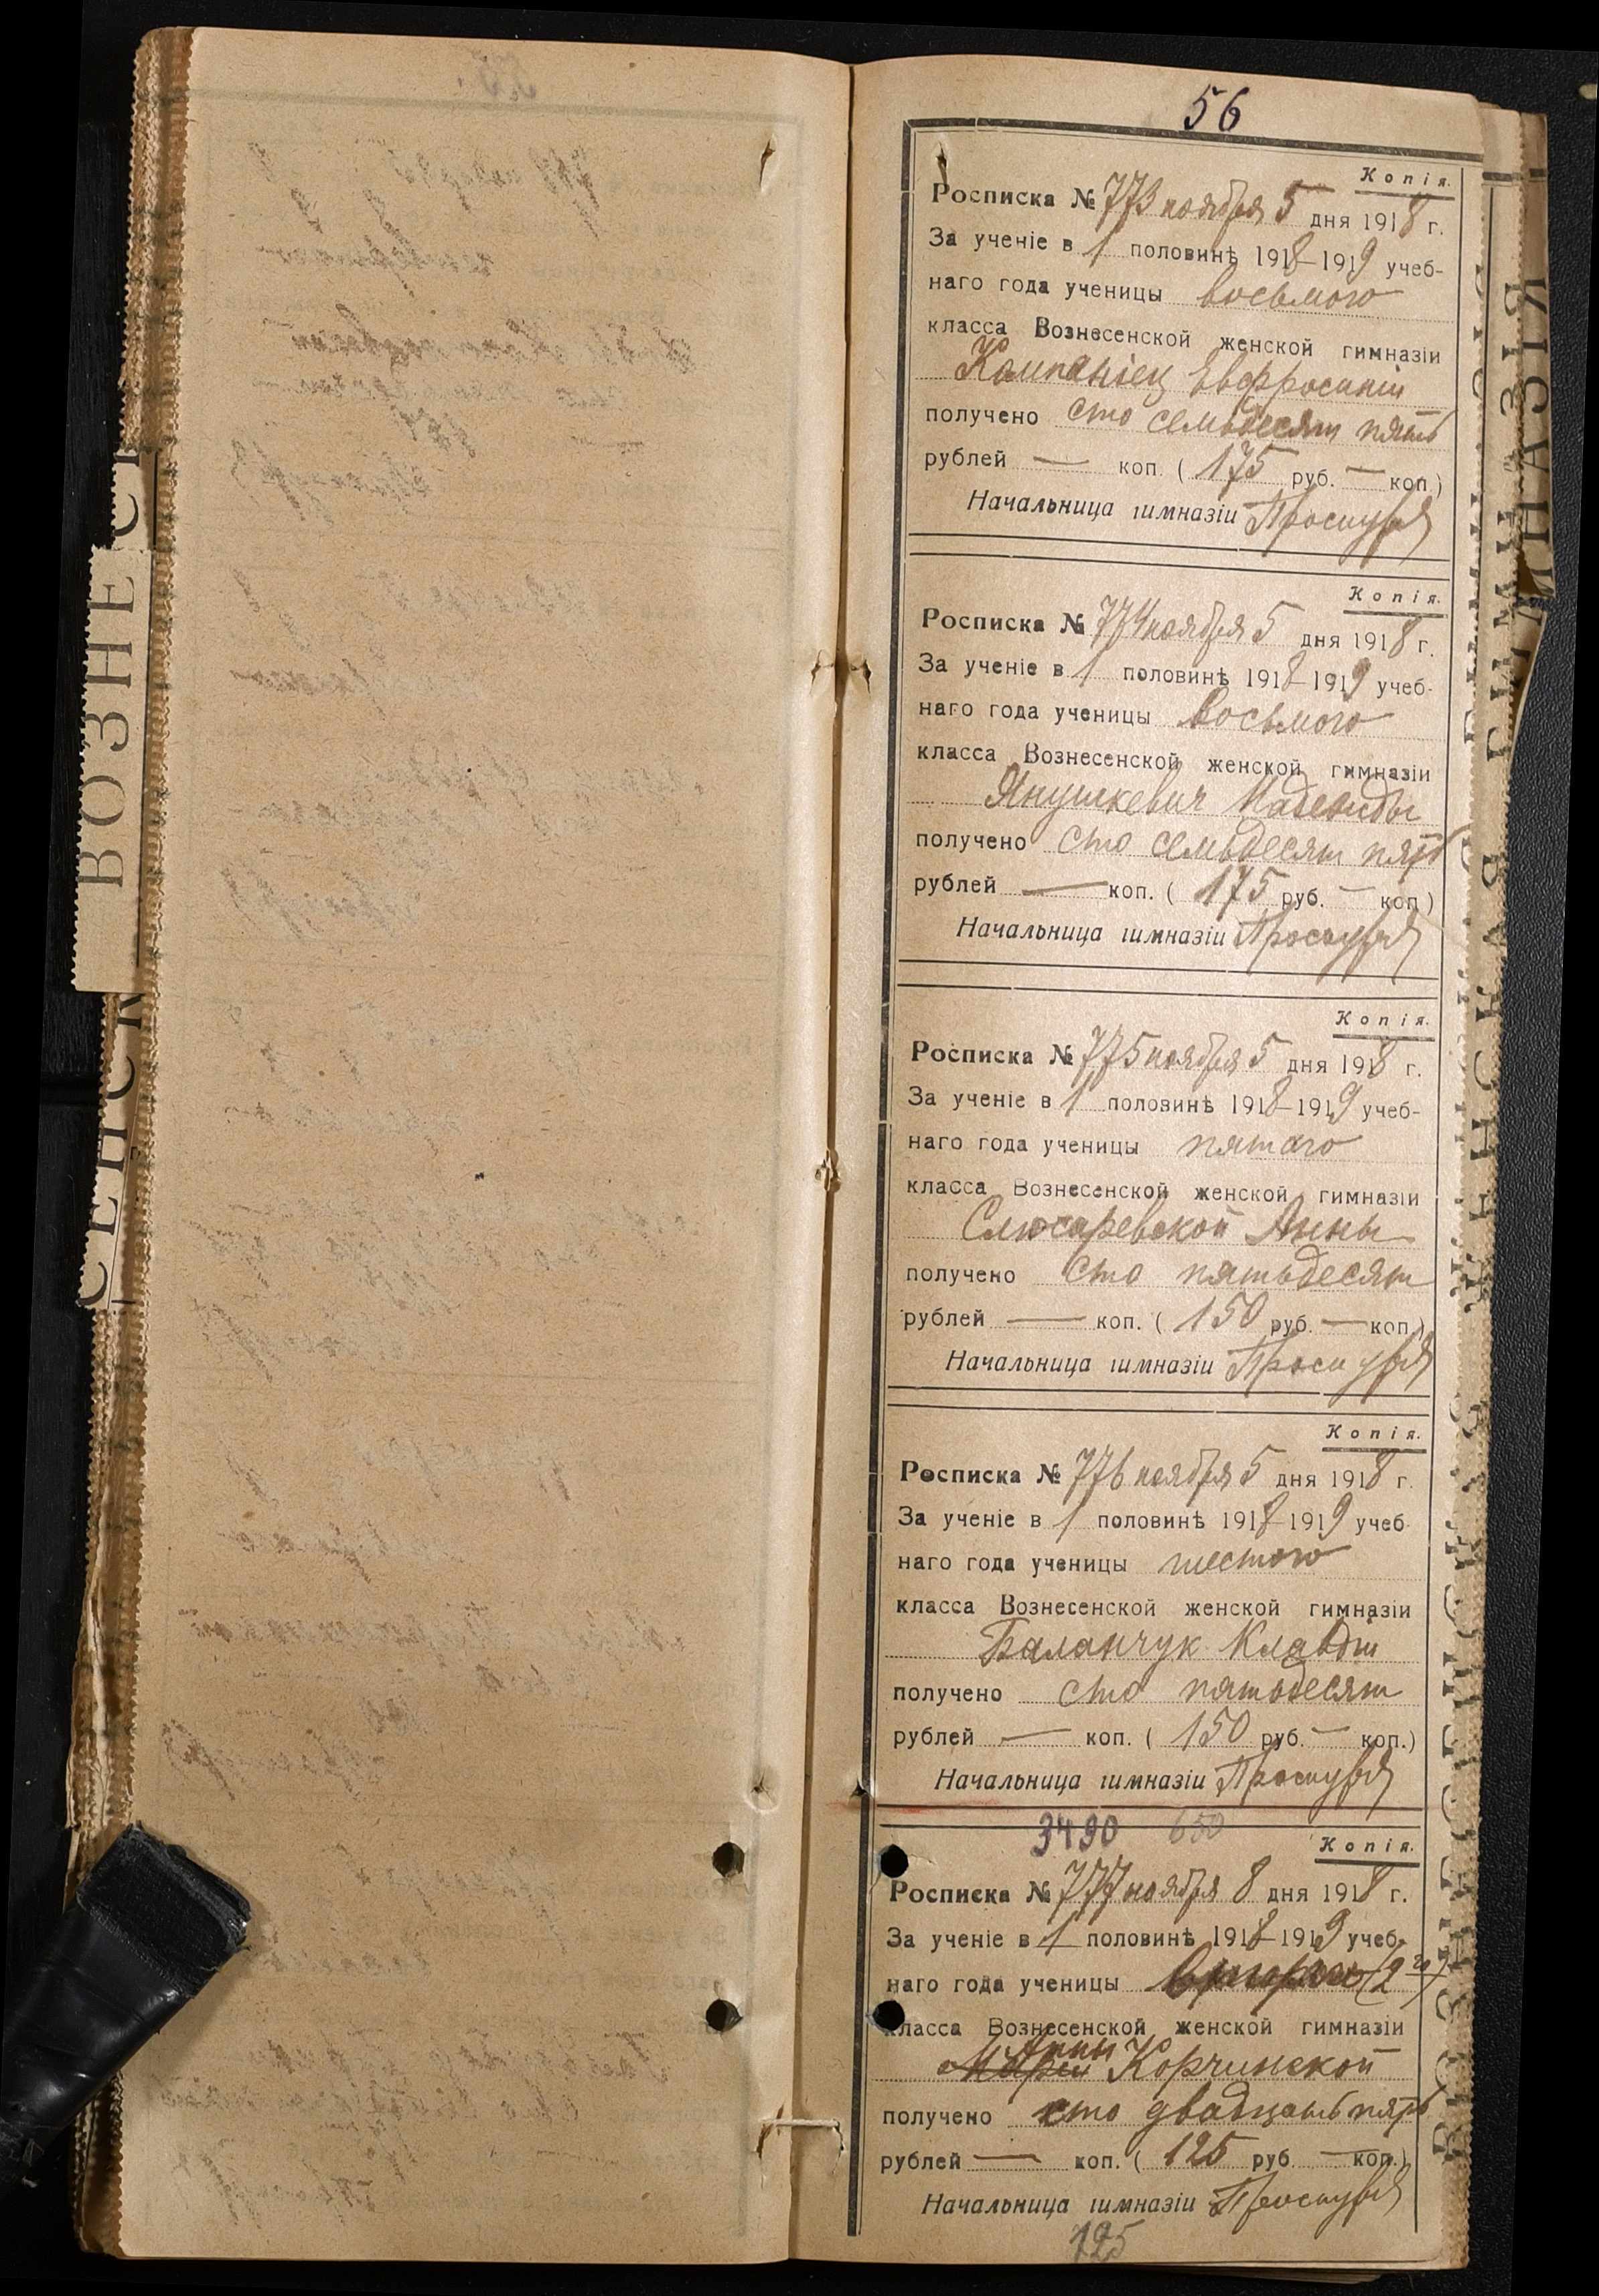 56
Копія.
Росписка № 773 ноября 5 дня 1918 г.
За ученіе в 1 половинѣ 1918–1919 учеб-
наго года ученицы восьмого
класса Вознесенской женской гимназіи
Компаніец Евфросиніи
получено сто семьдесят пять
рублей — коп. ( 175 руб. — коп)
Начальница гимназіи
Копія.
Росписка № 774 ноября 5 дня 1918 г.
За ученіе в 1 половинѣ 1918–1919 учеб-
наго года ученицы восьмого
класса Вознесенской женской гимназіи
Янушкевич Надежды
получено сто семьдесят пять
рублей — коп. ( 175 руб. — коп)
Начальница гимназіи
Копія.
Росписка № 775 ноября 5 дня 1918 г.
За ученіе в 1 половинѣ 1918–1919 учеб-
наго года ученицы пятого
класса Вознесенской женской гимназіи
Слюсаревской Анны
получено сто пятьдесят
рублей — коп. ( 150 руб. — коп.)
Начальница гимназіи
Копія.
Росписка № 776 ноября 5 дня 1918 г.
За ученіе в 1 половинѣ 1918–1919 учеб
наго года ученицы шестого
класса Вознесенской женской гимназіи
Баланчук Клавдіи
получено сто пятьдесят
рублей — коп. ( 150 руб. — коп.)
Начальница гимназіи
3490 650
Копія.
Росписка № 777 ноября 8 дня 1918 г.
За ученіе в 1 половинѣ 1918–1919 учеб-
наго года ученицы (2го)
класса Вознесенской женской гимназіи
Анны
Маріи Корчинской
получено сто двадцать пять
рублей — коп. ( 125 руб — коп.)
Начальница гимназіи
125
ВОЗНЕС
СЕНСК